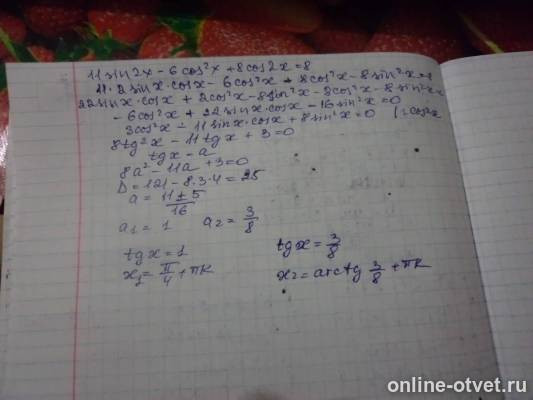 11 sin2x - 6cos²x + 8cos2x = 8
11·2 sinx·cosx - 6cos²x + 8cos²x - 8sin²x = 8
22 sinx·cosx + 2cos²x - 8sin²x - 8cos²x - 8sin²x
- 6cos²x + 22sinx·cosx - 16sin²x = 0
3cos²x - 11sinx·cosx + 8sin²x = 0 (:cos²x
8tg²x - 11tgx + 3 = 0
tgx - a
8a² - 11a + 3 = 0
D = 121 - 8·3·4 = 25
a = 11±5/16
a₁ = 1 a₂ = 3/8
tgx = 1 tgx = 3/8
x₁ = π/4 + πk x₂ = arctg 3/8 + πk
online-otvet.ru